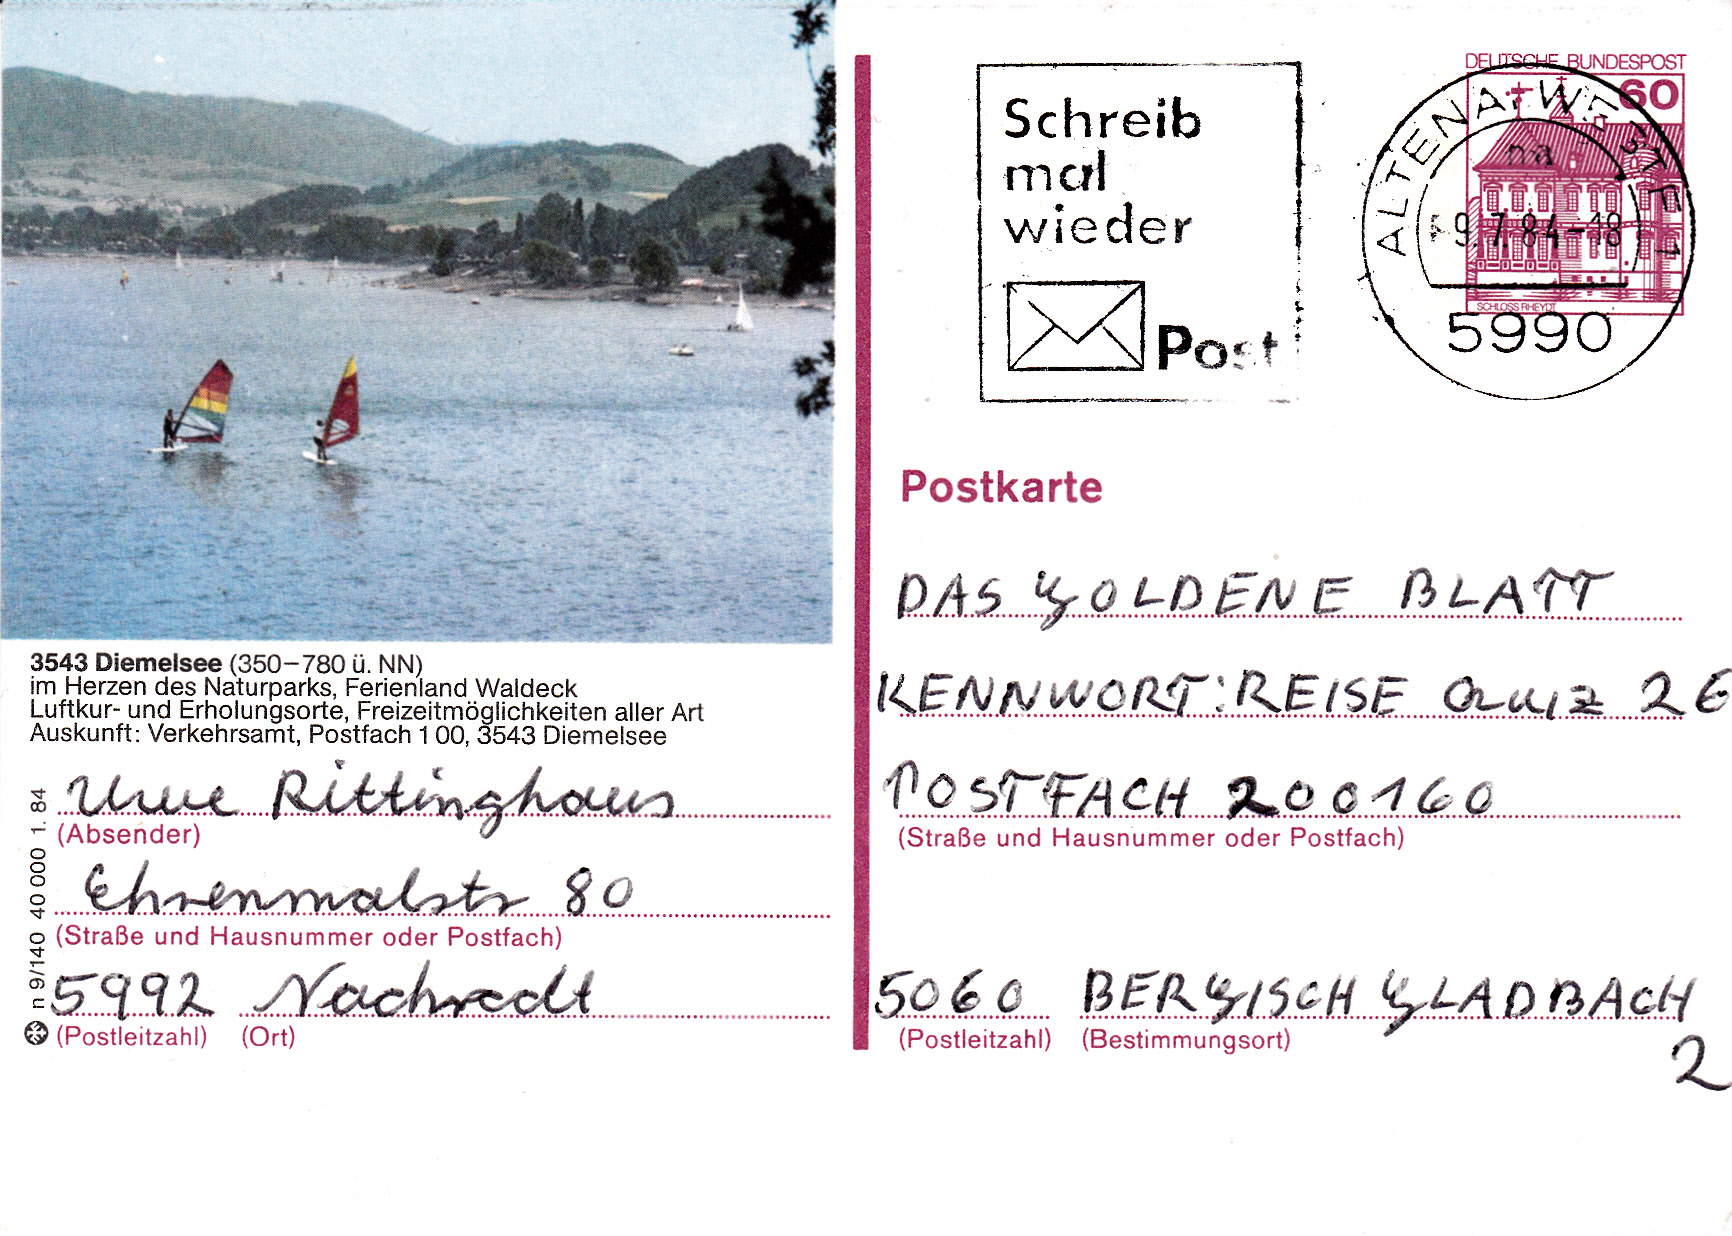 3543 Diemelsee (350–780 ü. NN)
im Herzen des Naturparks, Ferienland Waldeck
Luftkur- und Erholungsorte, Freizeitmöglichkeiten aller Art
Auskunft: Verkehrsamt, Postfach 1 00, 3543 Diemelsee
Uwe Rittinghaus
(Absender)
Ehrenmalstr 80
(Straße und Hausnummer oder Postfach)
5992 Nachrodt
(Postleitzahl) (Ort)
n 9/140 40 000 1. 84
Schreib
mal
wieder
Post
DEUTSCHE BUNDESPOST
60
SCHLOSS RHEYDT
ALTENA, WESTF 1
9.7.84-18
5990
Postkarte
DAS GOLDENE BLATT
KENNWORT: REISE QUIZ 26
POSTFACH 200160
(Straße und Hausnummer oder Postfach)
5060 BERGISCH GLADBACH
(Postleitzahl) (Bestimmungsort)
2